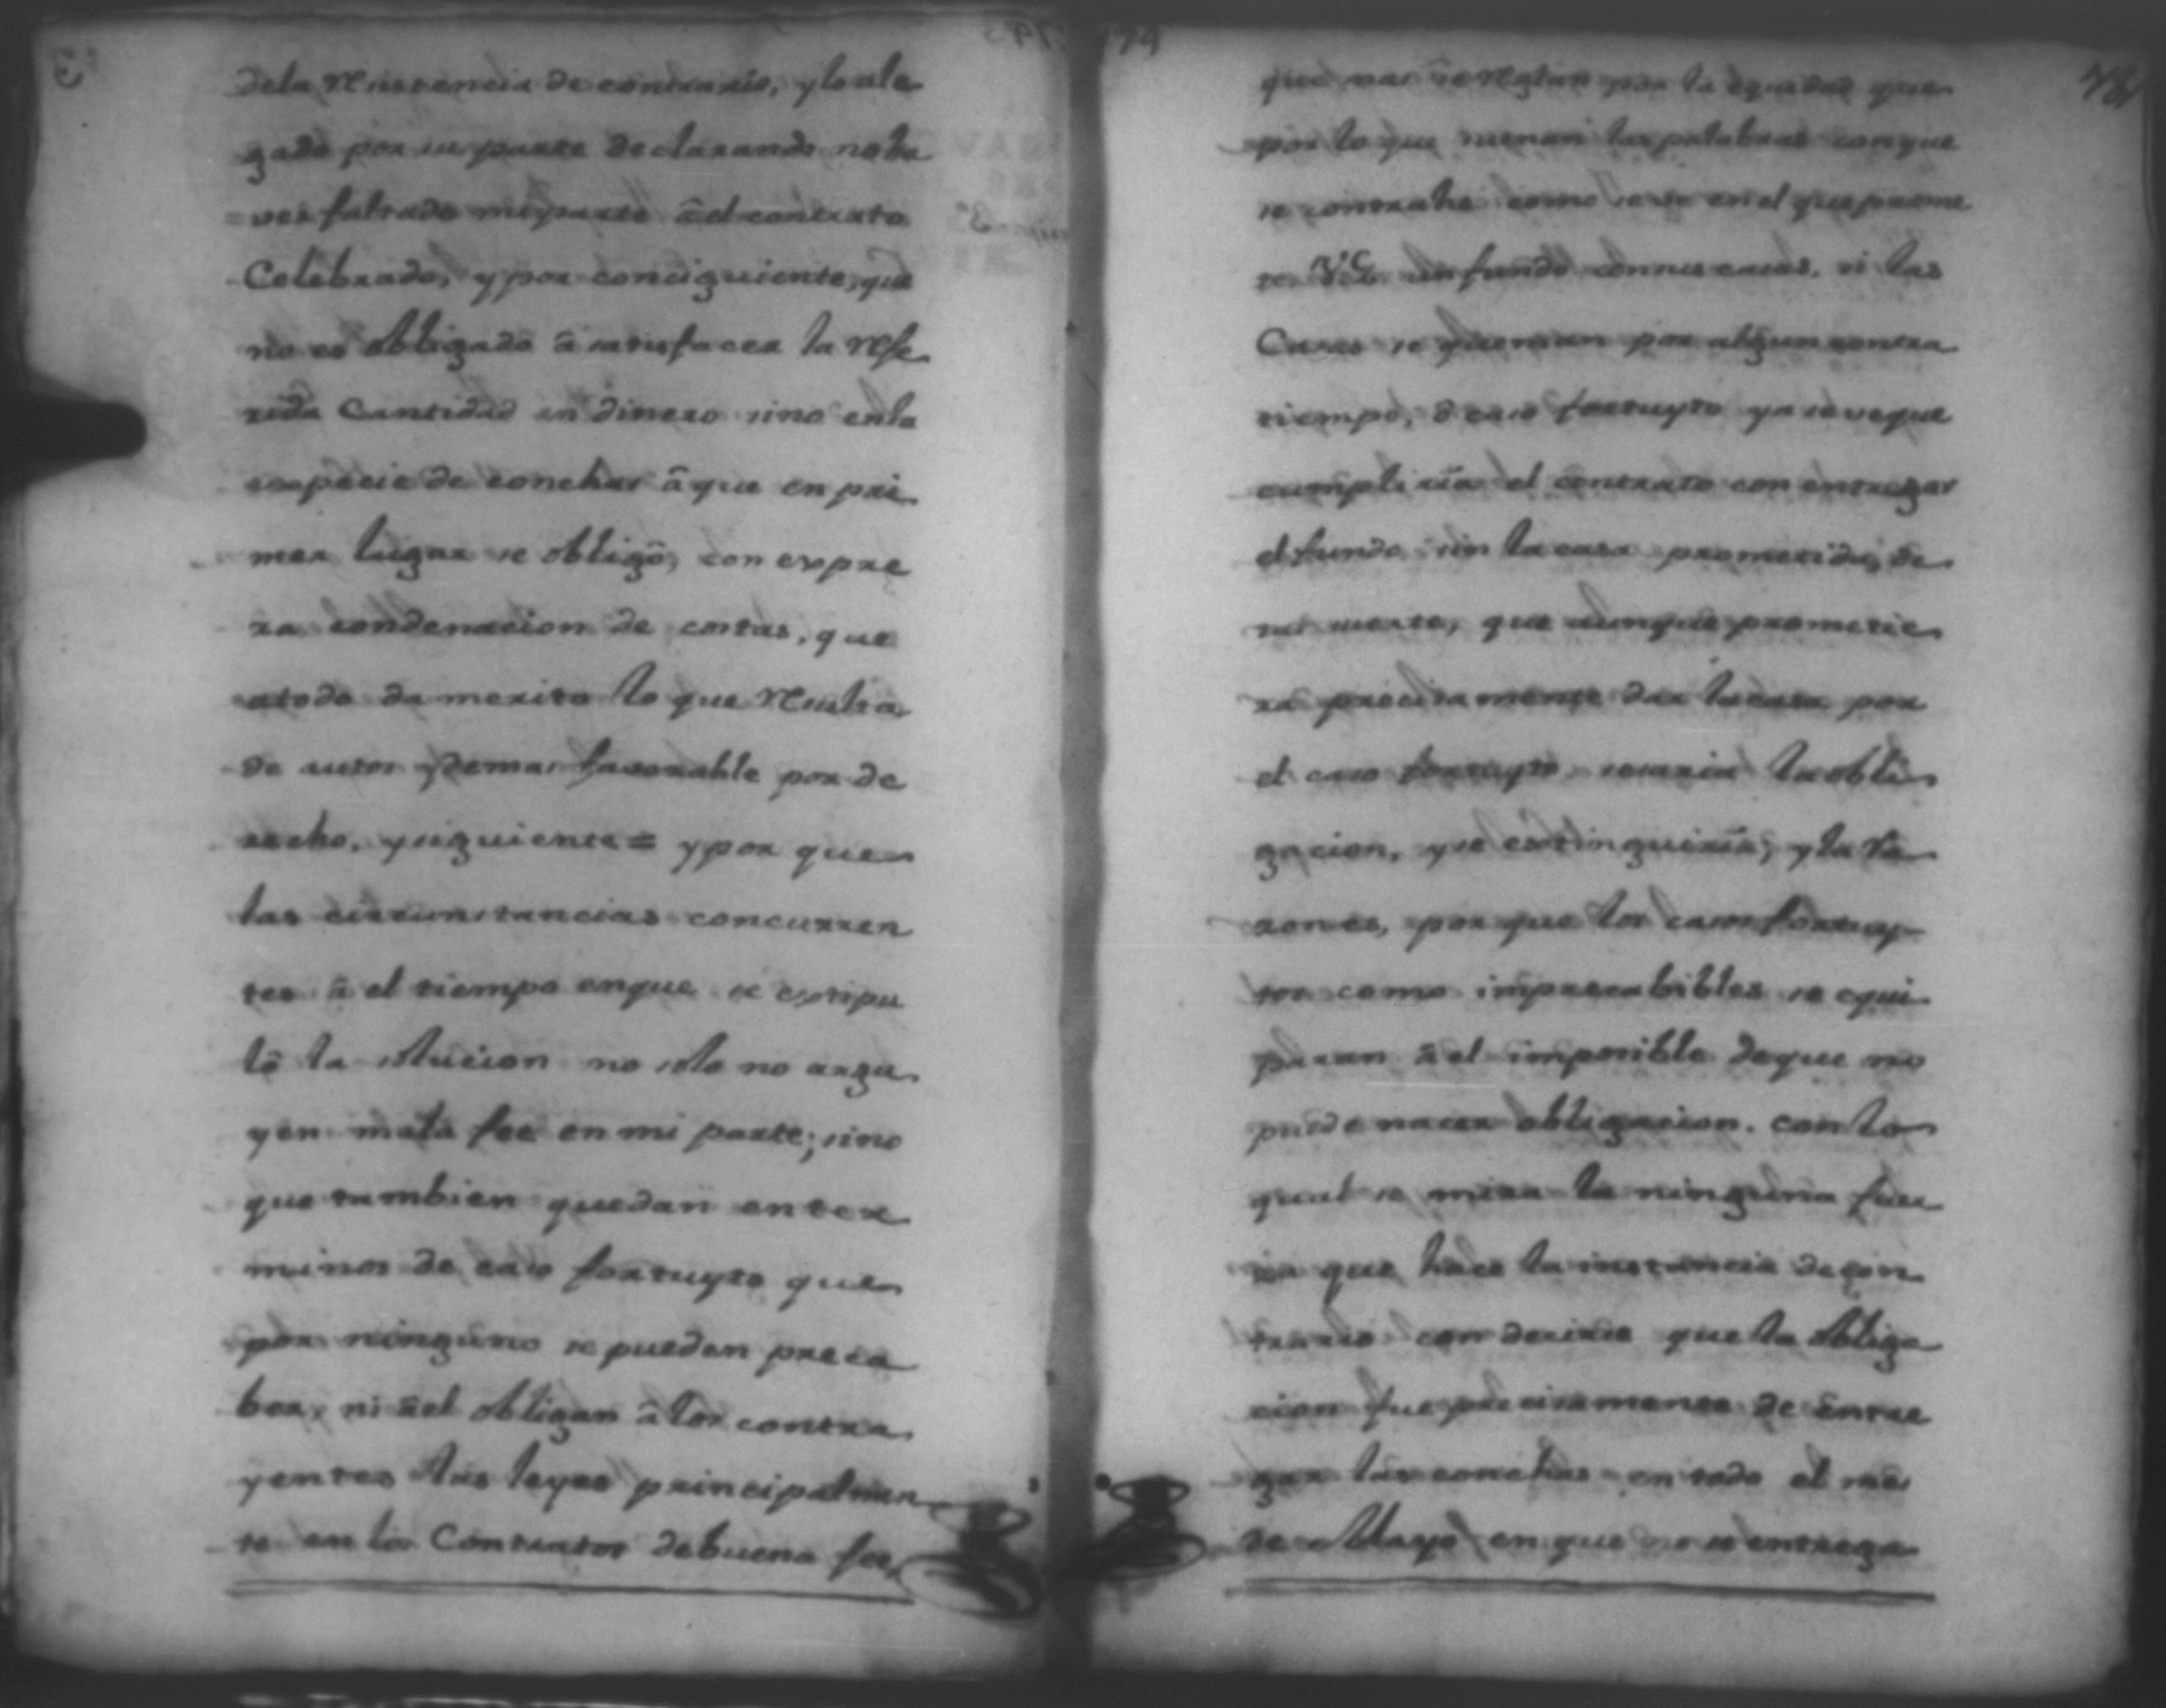 dela resistencia de contrario, y lo ale
gado por su parte declarando no ha
ver faltado mi parte â el contrato
Celebrado, y por conciguiente, que
no es obligado â satisfacer la refe
rida Cantidad en dinero sino en la
especie de conchas â que en pri
mer lugar se obligô, con expre
sa condenacion de costas, que
atodo da merito lo que resulta
de autos y demas favorable por de
recho, y siguiente = y por que
las circunstancias concurren
tes â el tiempo enque se estipu
lô la solucion no solo no argu
yen mala fee en mi parte; sino
que tambien quedan en ter
minos de caso fortuyto que
por ninguno se pueden preca
ber, ni âel obligan âlos contra
yentes las leyes principalmen
te en los Contratos debuena fee,
174
que mas se reglan por la equidad que
por lo que suenan las palabras conque
se contrahe como se ve en el que prome
te V.G. un fundo con sus casas, si las
Casas se queman por algun contra
tiempo, ô caso fortuyto ya se ve que
cumpliria el contrato con entregar
el fundo sin la casa prometida, de
tal suerte, que aunque prometie
ra precisamente dar la casa por
el caso fortuyto, cesaria la obli
gacion, y se extinguiria; y la ra
zon es, por que los casos fortuy
tos como imprecabibles se equi
paran âel imposible deque no
puede nacer obligacion. con lo
qual se mira la ninguna fuer
sa que hace la instancia de con
trario con decirse que la obliga
cion fue precisamente de entre
gar las conchas en todo el mes
de Mayo en que no se entrega